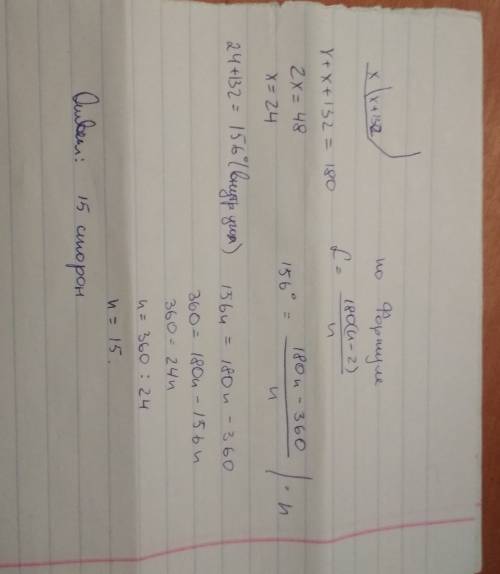 x x+132
x + x + 132 = 180
2x = 48
x = 24
24 + 132 = 156° (внутр угол)
по формуле
L = 180(n-2) / n
156° = 180n - 360 / n | · n
156n = 180n - 360
360 = 180n - 156n
360 = 24n
n = 360 : 24
n = 15.
Ответ: 15 сторон